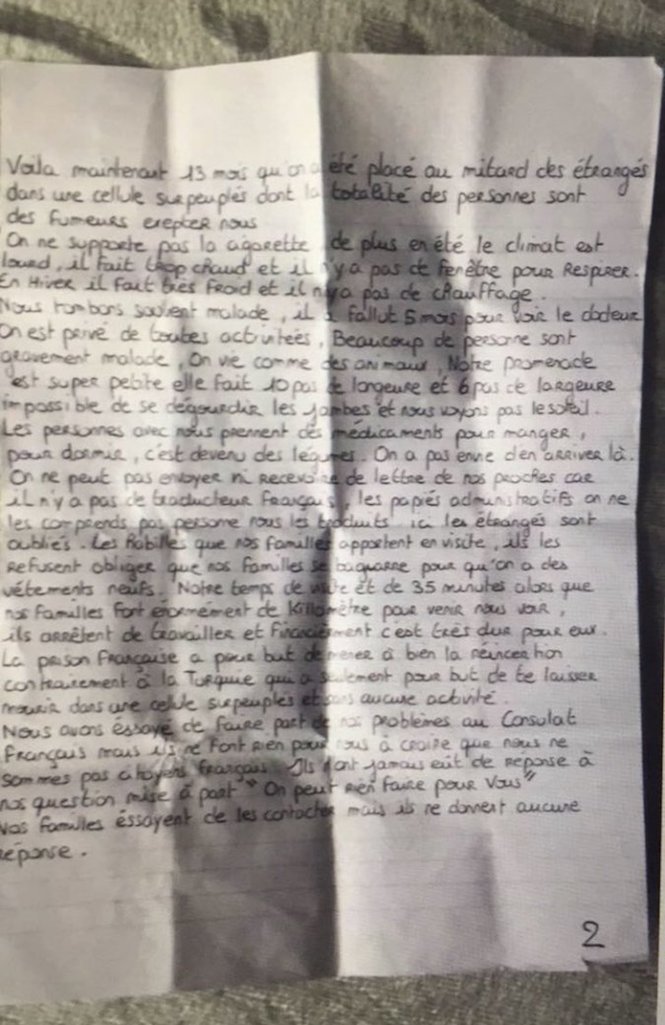 Voila maintenant 13 mois qu'on a été placé au mitard des étrangés
dans une cellule surpeuplés dont la totalité des personnes sont
des fumeurs erepter nous
On ne supporte pas la cigarette, de plus en été le climat est
lourd, il fait trop chaud et il n'y a pas de fenêtre pour Respirer.
En Hiver il fait très froid et il n'y a pas de chauffage.
Nous tombons souvent malade, il a fallut 5 mois pour voir le docteur
On est privé de toutes activiteés, Beaucoup de persone sont
gravement malade, On vie comme des animaux, Notre promenade
est super petite elle fait 10 pas de longeure et 6 pas de largeure
impossible de se dégourdir les jambes et nous voyons pas le soleil.
Les personnes avec nous prennent des médicaments pour manger,
pour dormir, c'est devenu des légumes. On a pas envie d'en arriver là.
On ne peut pas envoyer ni Recevoire de lettre de nos proches car
il n'y a pas de traducteur français, les papiés administratifs on ne
les comprends pas persone nous les traduits ici les étrangés sont
oubliés. Les Habilles que nos familles apportent en visite, ils les
Refusent obliger que nos familles se baguarre pour qu'on a des
vétements neufs. Notre temps de visite ét de 35 minutes alors que
nos familles font énormement de Killomètre pour venir nous voir,
ils arrêtent de travailler et financièrement c'est très dur pour eux.
La prison française a pour but de mener à bien la réincertion
contrairement à la Turquie qui a seulement pour but de te laisser
mourir dans une cellule surpeuplés et sans aucune activité.
Nous avons éssayé de faire part de nos problèmes au Consulat
français mais ils ne font rien pour nous à croire que nous ne
sommes pas citoyens français. Ils n'ont jamais eût de réponse à
nos question mise à part "On peut Rien faire pour Vous"
Nos familles éssayent de les contacter mais ils ne donnent aucune
réponse.
2